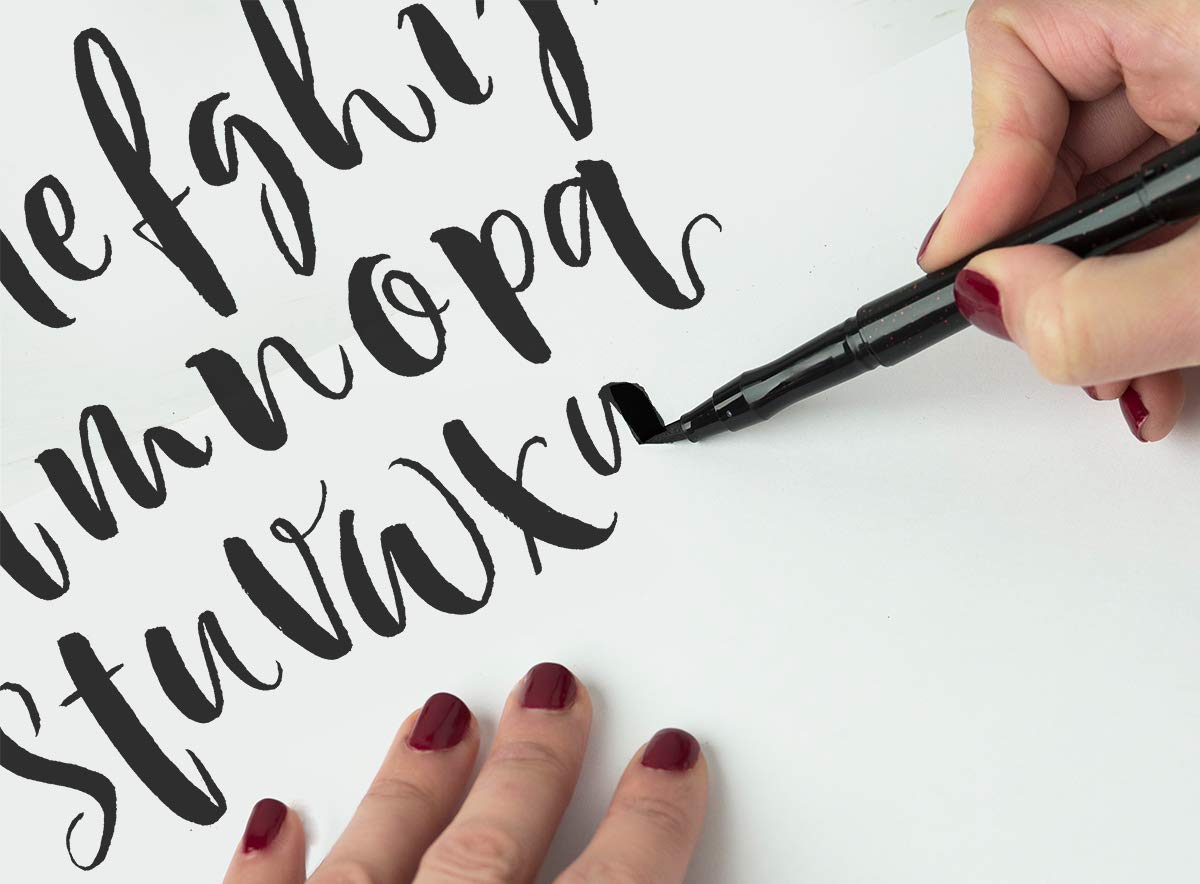 efghij
mnopq
stuvwx